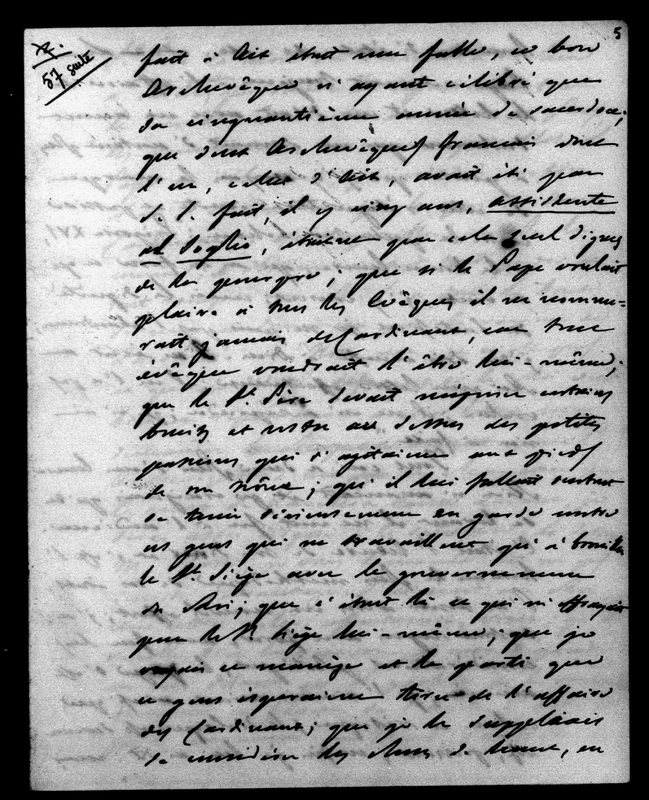 57 suite
5
fait à Aix était une fable, ce bon
Archevêque n'ayant célébré que
sa cinquantième année de sacerdoce;
que deux Archevêques français dont
l'un, celui d'Aix, avait été par
S. S. fait, il y cinq ans, assistente
al Soglio, étaient par cela seul dignes
de la pourpre; que si le Pape voulait
plaire à tous les Evêques il ne nomme-
rait jamais de Cardinaux, car tout
évêque voudrait l'être lui-même;
que le St. Père devait mépriser certains
bruits et rester au dessus des petites
passions qui s'agitaient aux pieds
de son trône; qu'il lui fallait surtout
se tenir sérieusement en garde contre
ces gens qui ne travaillent qu'à brouiller
le St. Siège avec le gouvernement
du Roi; que c'était là ce qui m'effrayait
pour le St Siège lui-même; que je
voyais ce manège et le parti que
ces gens espéraient tirer de l'affaire
des Cardinaux; que je le suppliais
de considérer les choses de haut, en